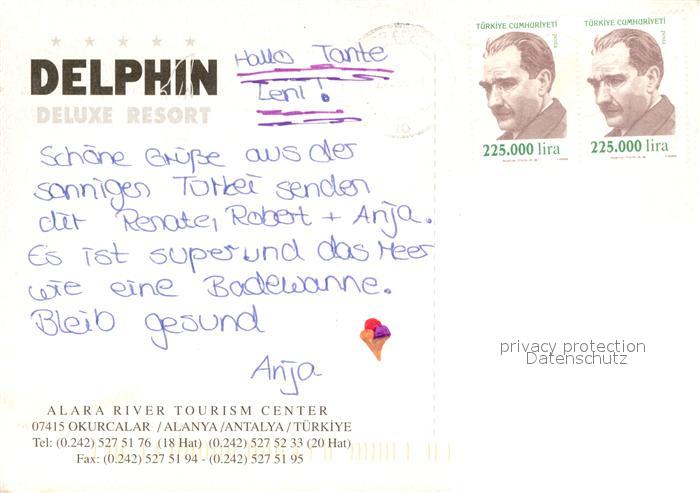 DELPHIN
DELUXE RESORT
Hallo Tante
Leni!
Schöne Grüße aus der
sonnigen Türkei senden
dir Renate, Robert + Anja.
Es ist super und das Meer
wie eine Badewanne.
Bleib gesund
Anja
ALARA RIVER TOURISM CENTER
07415 OKURCALAR / ALANYA / ANTALYA / TÜRKİYE
Tel: (0.242) 527 51 76 (18 Hat) (0.242) 527 52 33 (20 Hat)
Fax: (0.242) 527 51 94 - (0.242) 527 51 95
TÜRKİYE CUMHURİYETİ
posta
225.000 lira
TÜRKİYE CUMHURİYETİ
posta
225.000 lira
privacy protection
Datenschutz